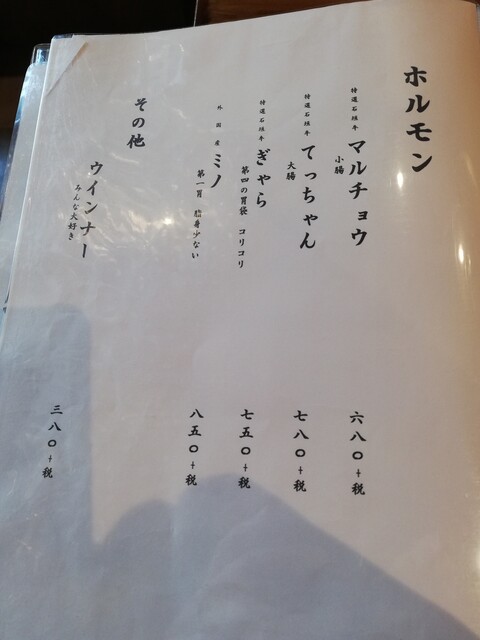 ホルモン
特選石垣牛 マルチョウ
小腸
六八〇+税
特選石垣牛 てっちゃん
大腸
七八〇+税
特選石垣牛 ぎゃら
第四の胃袋 コリコリ
七五〇+税
外国産 ミノ
第一胃 脂身少ない
八五〇+税
その他
ウインナー
みんな大好き
三八〇+税